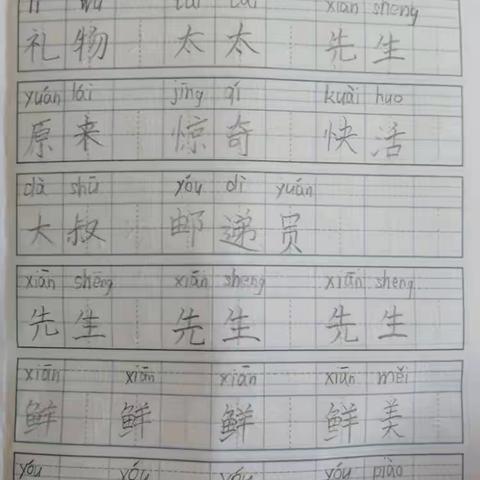 lǐ wù tài tai xiān sheng
礼物 太太 先生
yuán lái jīng qí kuài huo
原来 惊奇 快活
dà shū yóu dì yuán
大叔 邮递员
xiān shēng xiān sheng xiān sheng
先生 先生 先生
xiān xiān xiān xiān měi
鲜 鲜 鲜 鲜美
yóu yóu yóu yóu piào